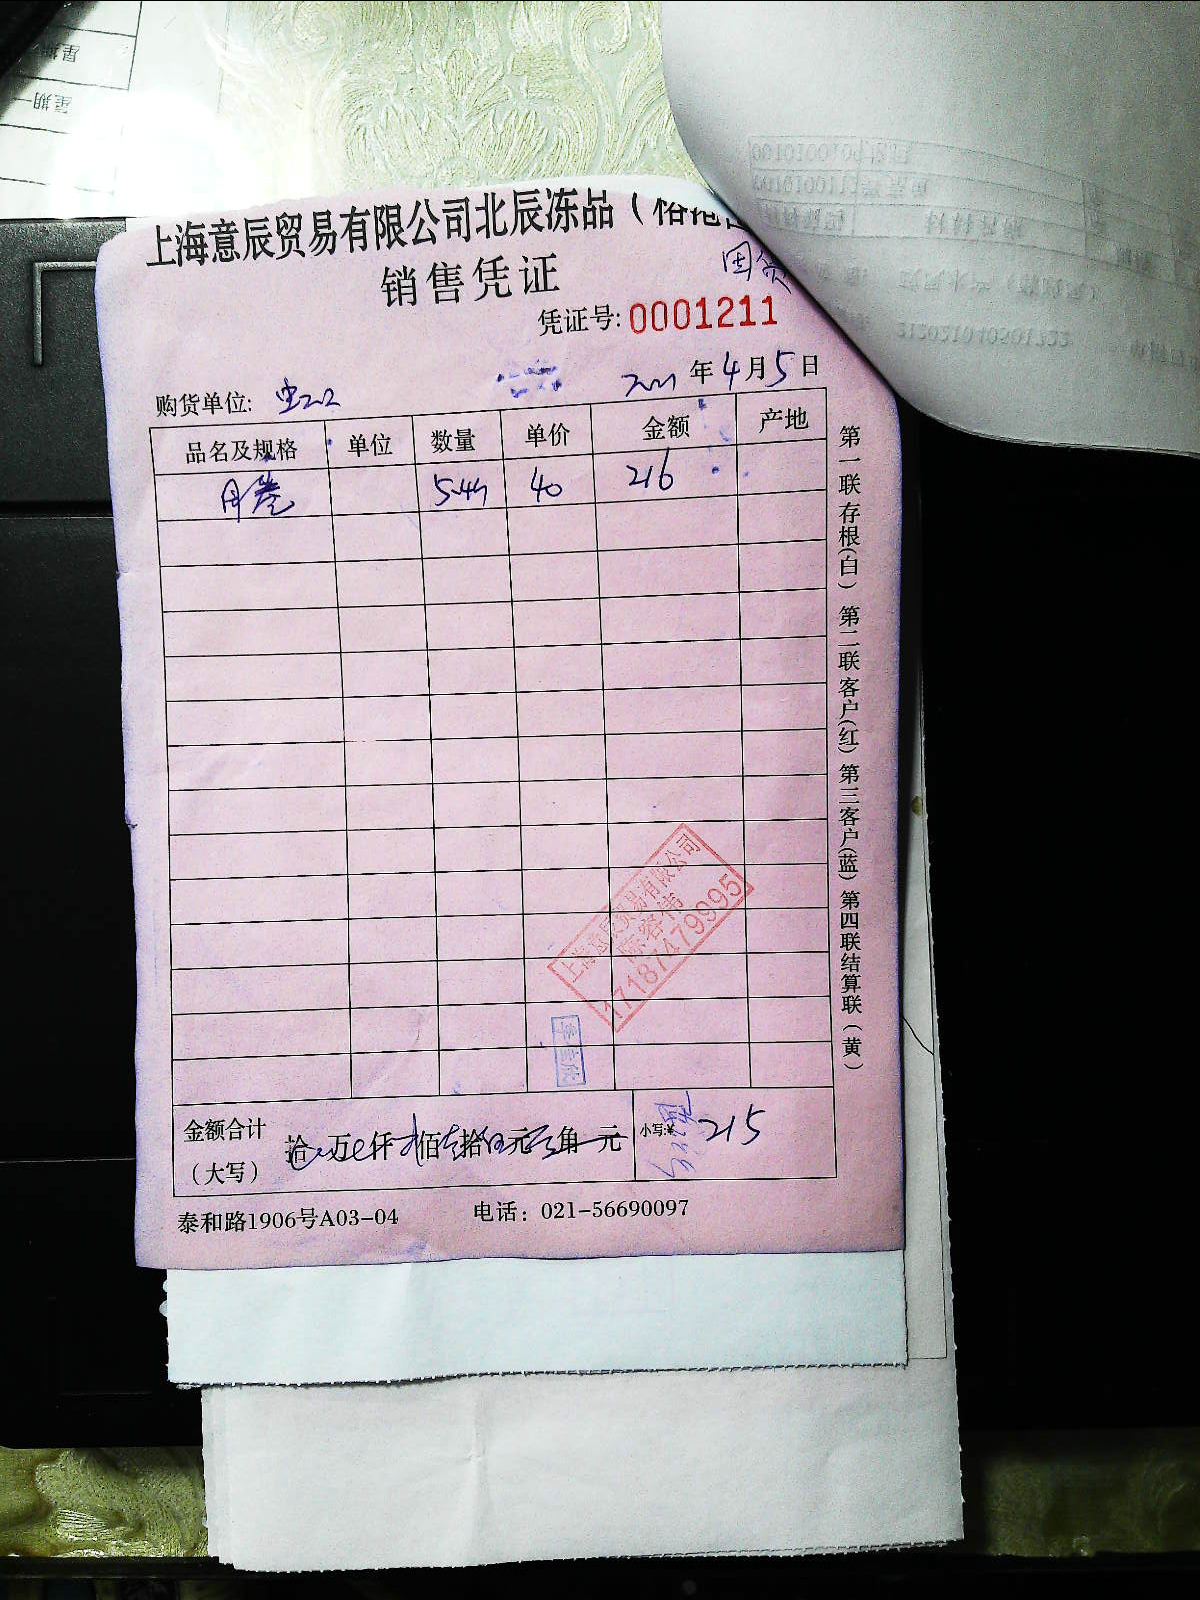 星期一
上海意辰贸易有限公司北辰冻品（
销售凭证
凭证号: 0001211
2021 年 4 月 5 日
购货单位:
品名及规格 单位 数量 单价 金额 产地
月卷 40 216
上海意辰贸易有限公司
17187479995
金额合计
（大写）
拾 万 仟 佰 拾 元 角 元 小写:¥ 215
泰和路1906号A03-04 电话：021-56690097
第一联存根(白) 第二联客户(红) 第三客户(蓝) 第四联结算联（黄）